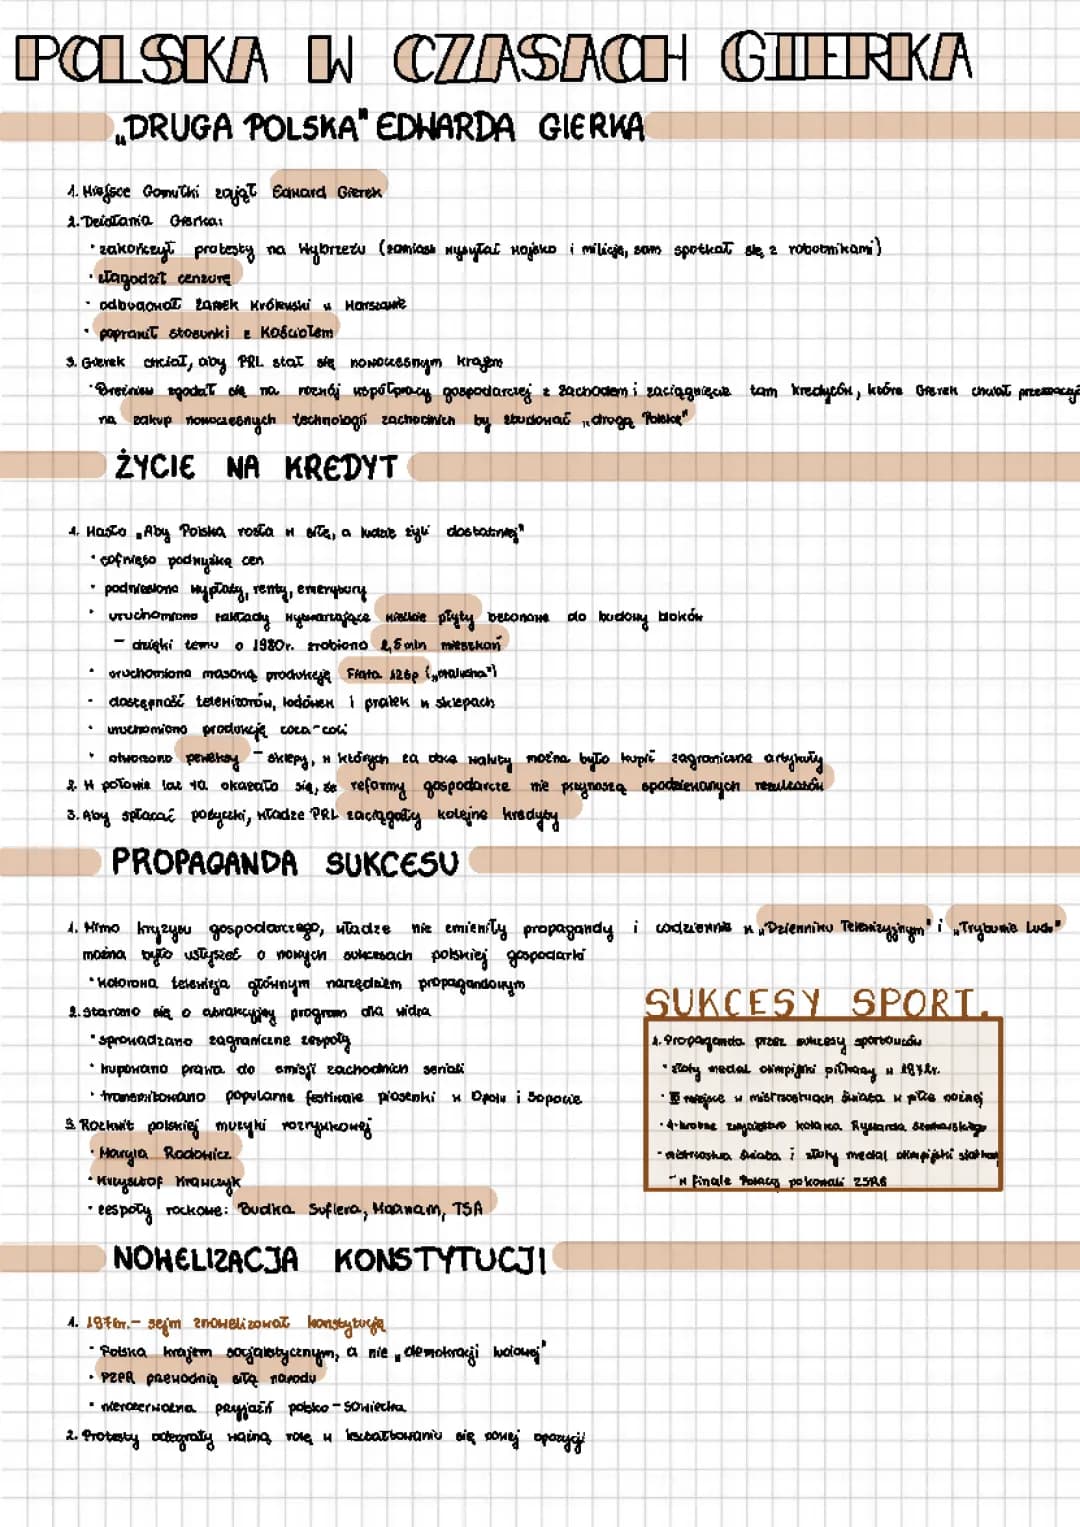 POLSKA W CZASACH GIERKA
„DRUGA POLSKA" EDWARDA GIERKA
1. Miejsce Gomułki zajął Edward Gierek
2. Działania Gierka:
• zakończył protesty na Wybrzeżu (zamiast wysyłać wojsko i milicję, sam spotkał się z robotnikami)
• złagodził cenzurę
• odbudował Zamek Królewski w Warszawie
• poprawił stosunki z Kościołem
3. Gierek chciał, aby PRL stał się nowoczesnym krajem
• Breżniew zgodał się na rozwój współpracy gospodarczej z Zachodem i zaciągnięcie tam kredytów, które Gierek chciał przeznaczyć
na zakup nowoczesnych technologii zachodnich by zbudować „drogą Polskę"
ŻYCIE NA KREDYT
1. Hasło „Aby Polska rosła w siłę, a ludzie żyli dostatniej"
• cofnięto podwyżkę cen
• podniesiono wypłaty, renty, emerytury
• uruchomiono zakłady wytwarzające wielkie płyty betonowe do budowy bloków
- dzięki temu o 1980r. zrobiono 2,5 mln mieszkań
• uruchomiono masową produkcję Fiata 126p („malucha")
• dostępność telewizorów, lodówek i pralek w sklepach
• uruchomiono produkcję coca-coli
• otworzono peweksy - sklepy, w których za obce waluty można było kupić zagraniczne artykuły
2. W połowie lat 70. okazało się, że reformy gospodarcze nie przynoszą spodziewanych rezultatów
3. Aby spłacać pożyczki, władze PRL zaciągały kolejne kredyty
PROPAGANDA SUKCESU
1. Mimo kryzysu gospodarczego, władze nie zmieniły propagandy i codziennie w „Dzienniku Telewizyjnym" i „Trybunie Ludu"
można było usłyszeć o nowych sukcesach polskiej gospodarki
• kolorowa telewizja głównym narzędziem propagandowym
2. starano się o atrakcyjny program dla widza
• sprowadzano zagraniczne zespoły
• kupowano prawa do emisji zachodnich seriali
• transmitowano popularne festiwale piosenki w Opolu i Sopocie
3. Rozkwit polskiej muzyki rozrywkowej
• Maryla Rodowicz
• Krzysztof Krawczyk
• zespoły rockowe: Budka Suflera, Maanam, TSA
SUKCESY SPORT.
1. Propaganda przez sukcesy sportowców
• złoty medal olimpijski piłkarzy w 1972r.
• III miejsce w mistrzostwach świata w piłce nożnej
• 4-krotne zwycięstwo kolarza Ryszarda Szurkowskiego
• mistrzostwo świata i złoty medal olimpijski siatkarzy
- w finale Polacy pokonali ZSRS
NOWELIZACJA KONSTYTUCJI
1. 1976r. - sejm znowelizował konstytucję
• Polska krajem socjalistycznym, a nie „demokracji ludowej"
• PZPR przewodnią siłą narodu
• nierozerwalna przyjaźń polsko-sowiecka
2. Protesty odegrały ważną rolę w kształtowaniu się nowej opozycji